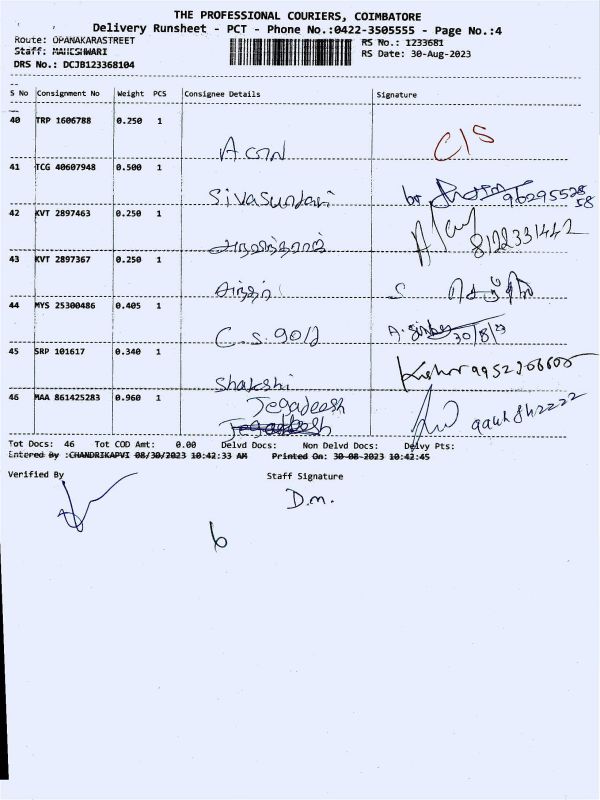 THE PROFESSIONAL COURIERS, COIMBATORE
Delivery Runsheet - PCT - Phone No.:0422-3505555 - Page No.:4
Route: OPANAKARASTREET RS No.: 1233681
Staff: MAHESHWARI RS Date: 30-Aug-2023
DRS No.: DCJB123368104
S No Consignment No Weight PCS Consignee Details Signature
40 TRP 1606788 0.250 1
C/S
41 TCG 40607948 0.500 1
Sivasundari
42 KVT 2897463 0.250 1
8122331442
43 KVT 2897367 0.250 1
44 MYS 25300486 0.405 1
C.S. Gold 30/8/23
45 SRP 101617 0.340 1
Shakshi Kishor
46 MAA 861425283 0.960 1
Jegadeesh
Jegadeesh
Tot Docs: 46 Tot COD Amt: 0.00 Delvd Docs: Non Delvd Docs: Delvy Pts:
Entered By :CHANDRIKAPVI 08/30/2023 10:42:33 AM Printed On: 30-08-2023 10:42:45
Verified By Staff Signature
D.m.